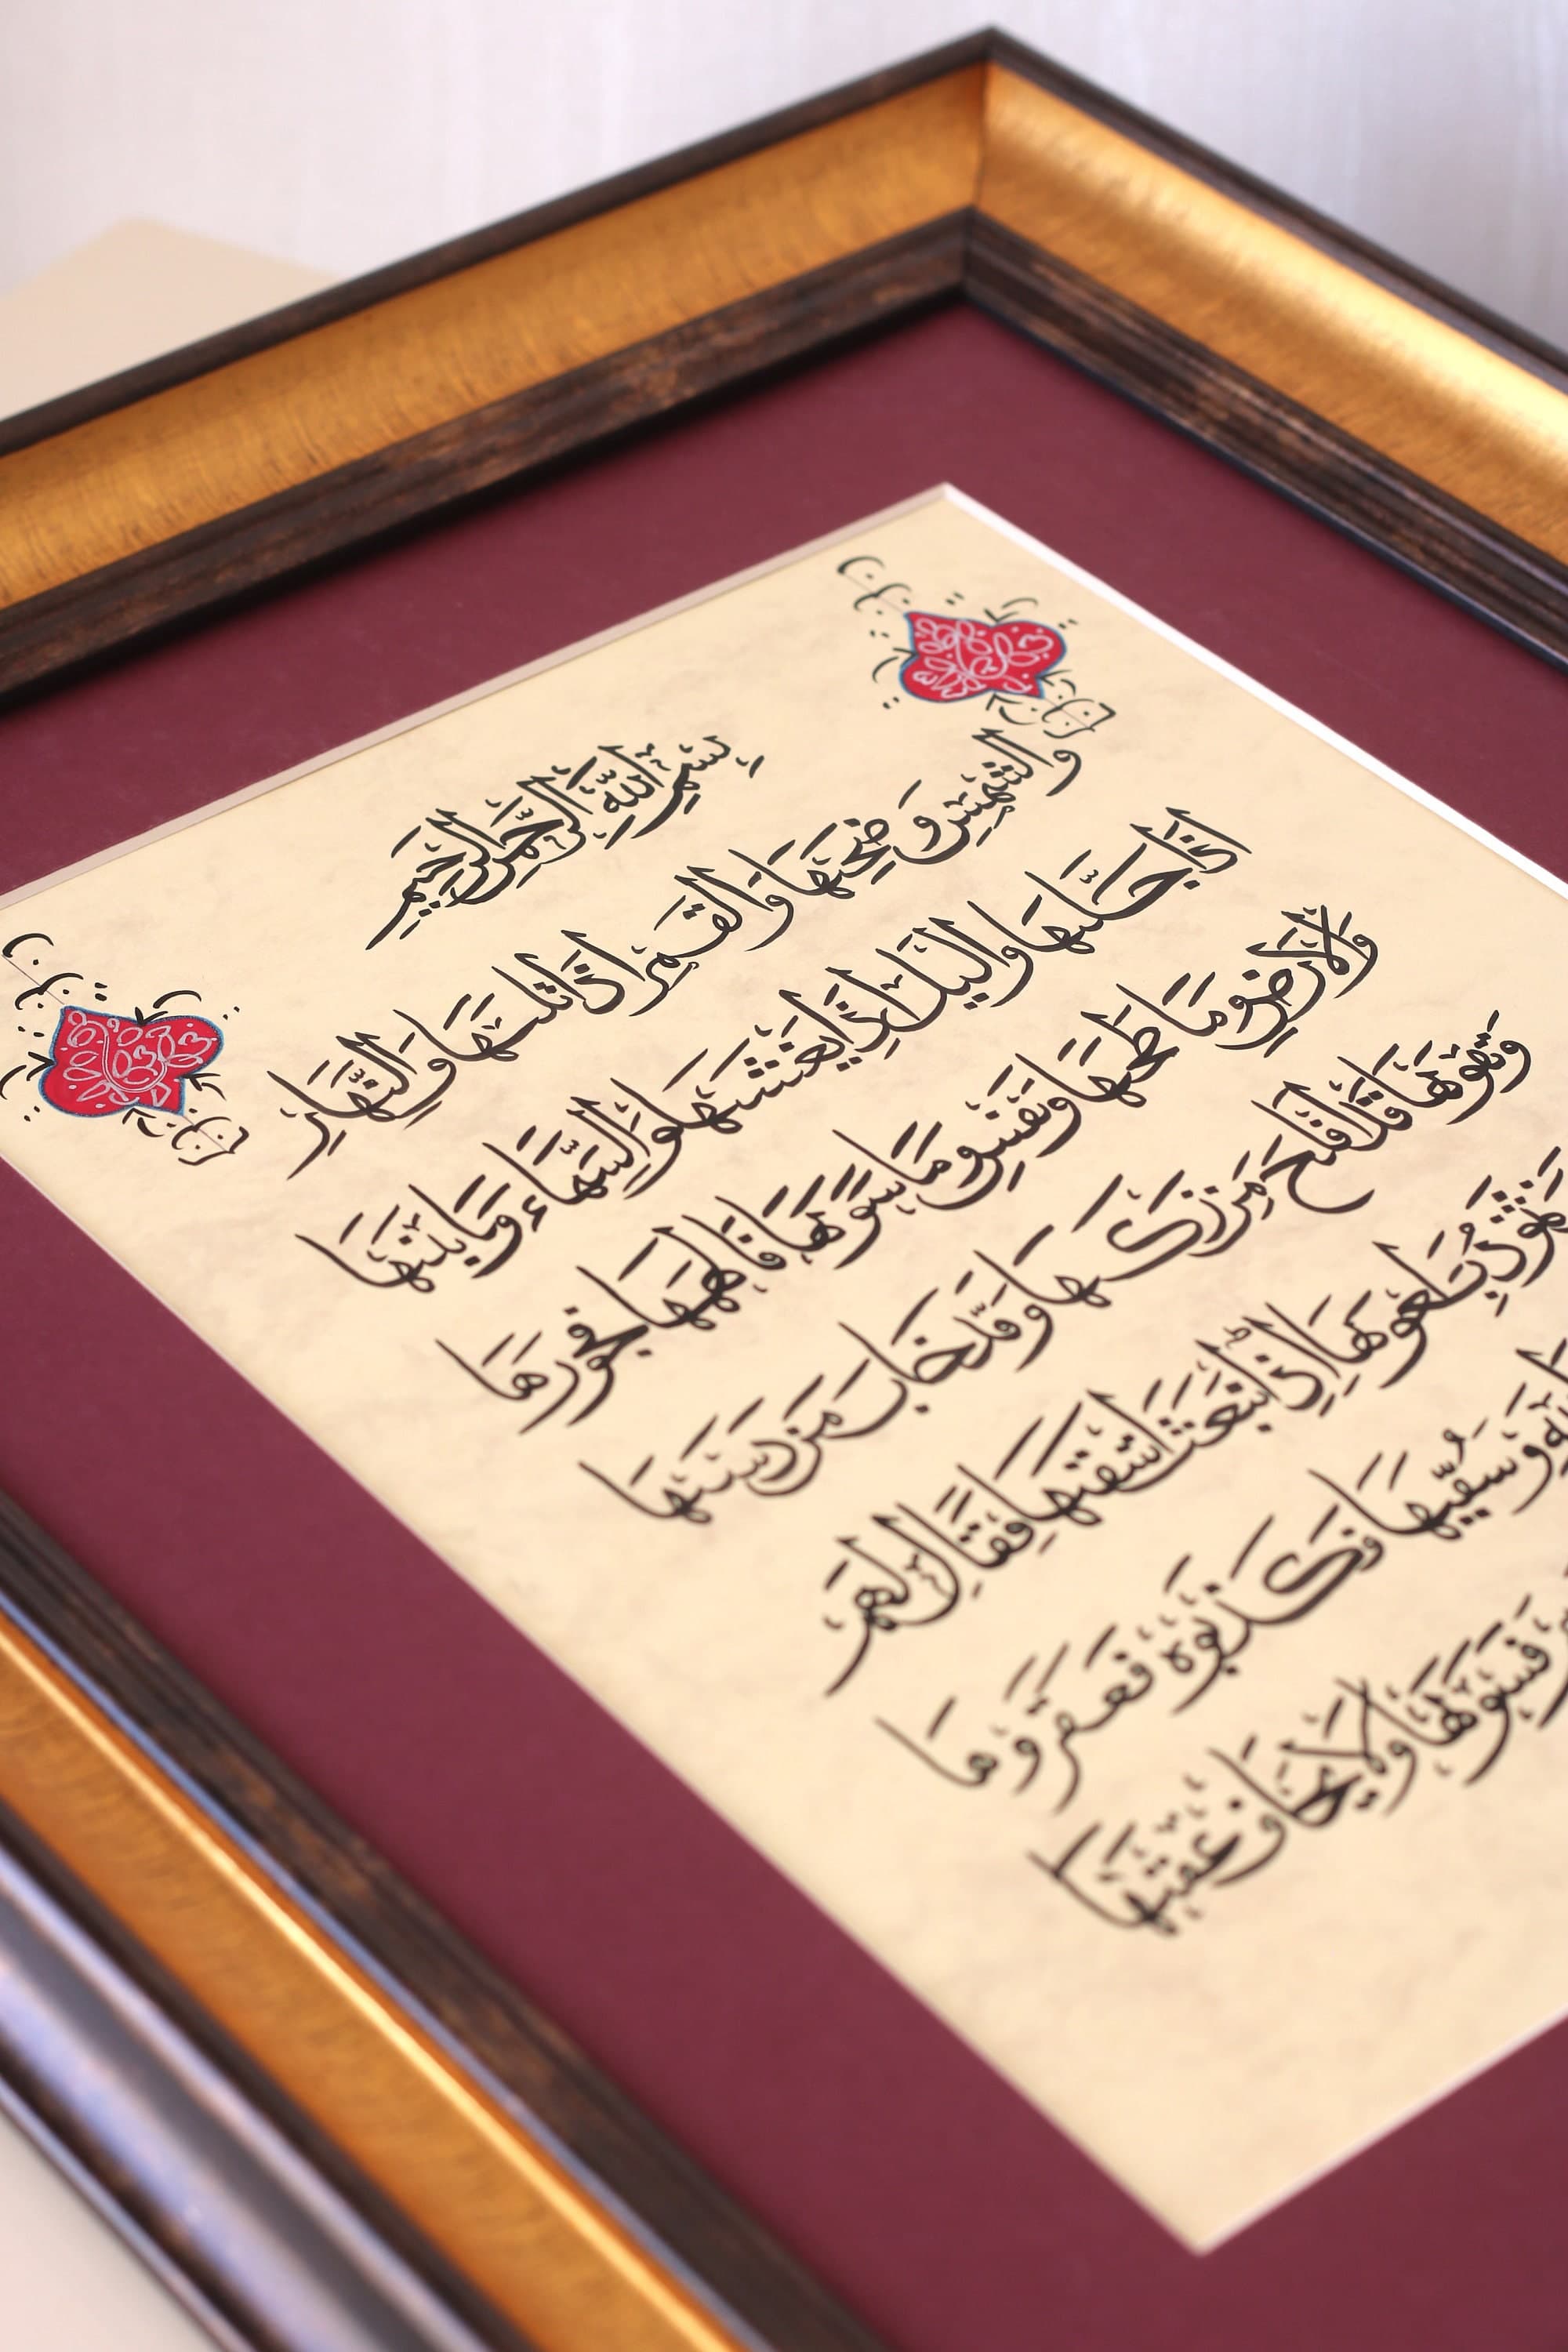 بِسْمِ اللَّهِ الرَّحْمَنِ الرَّحِيمِ
وَالشَّمْسِ وَضُحَىٰهَا وَالْقَمَرِ إِذَا تَلَىٰهَا وَالنَّهَارِ
إِذَا جَلَّىٰهَا وَالَّيْلِ إِذَا يَغْشَىٰهَا وَالسَّمَاءِ وَمَا بَنَىٰهَا
وَالْأَرْضِ وَمَا طَحَىٰهَا وَنَفْسٍ وَمَا سَوَّىٰهَا فَأَلْهَمَهَا فُجُورَهَا
وَتَقْوَىٰهَا قَدْ أَفْلَحَ مَنْ زَكَّىٰهَا وَقَدْ خَابَ مَنْ دَسَّىٰهَا
ثَمُودُ بِطَغْوَىٰهَا إِذِ انْبَعَثَ أَشْقَىٰهَا فَقَالَ لَهُمْ
وَسُقْيَٰهَا فَكَذَّبُوهُ فَعَقَرُوهَا
فَسَوَّىٰهَا وَلَا يَخَافُ عُقْبَٰهَا